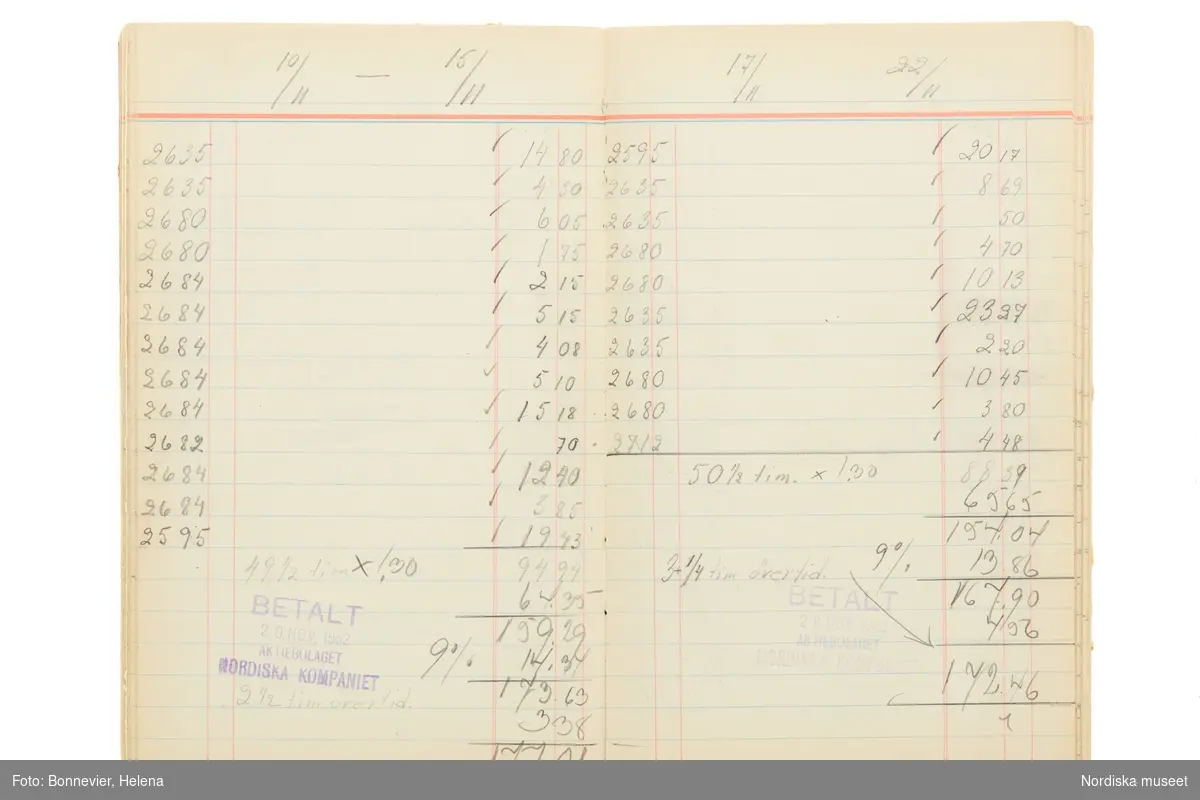 10/11 — 15/11
2635 14 80
2635 4 30
2680 6 05
2680 1 75
2684 2 15
2684 5 15
2684 4 08
2684 5 10
2684 15 18
2682 70
2684 12 40
2684 3 85
2595 19 43
94 94
49 1/2 tim × 1,30
64.35
BETALT
20 NOV. 1952
AKTIEBOLAGET
NORDISKA KOMPANIET
159.29
9% 14.34
173.63
2 1/2 tim övertid.
3 38
177 01
17/11 22/11
2595 20 17
2635 8 69
2635 50
2680 4 70
2680 10 13
2635 23 27
2635 2 20
2680 10 45
2680 3 80
2712 4 48
50 1/2 tim. × 1,30 88 39
65 65
154.04
9% 13.86
3 1/4 tim övertid.
167.90
BETALT
AKTIEBOLAGET
NORDISKA
4 56
172.46
Foto: Bonnevier, Helena
Nordiska museet